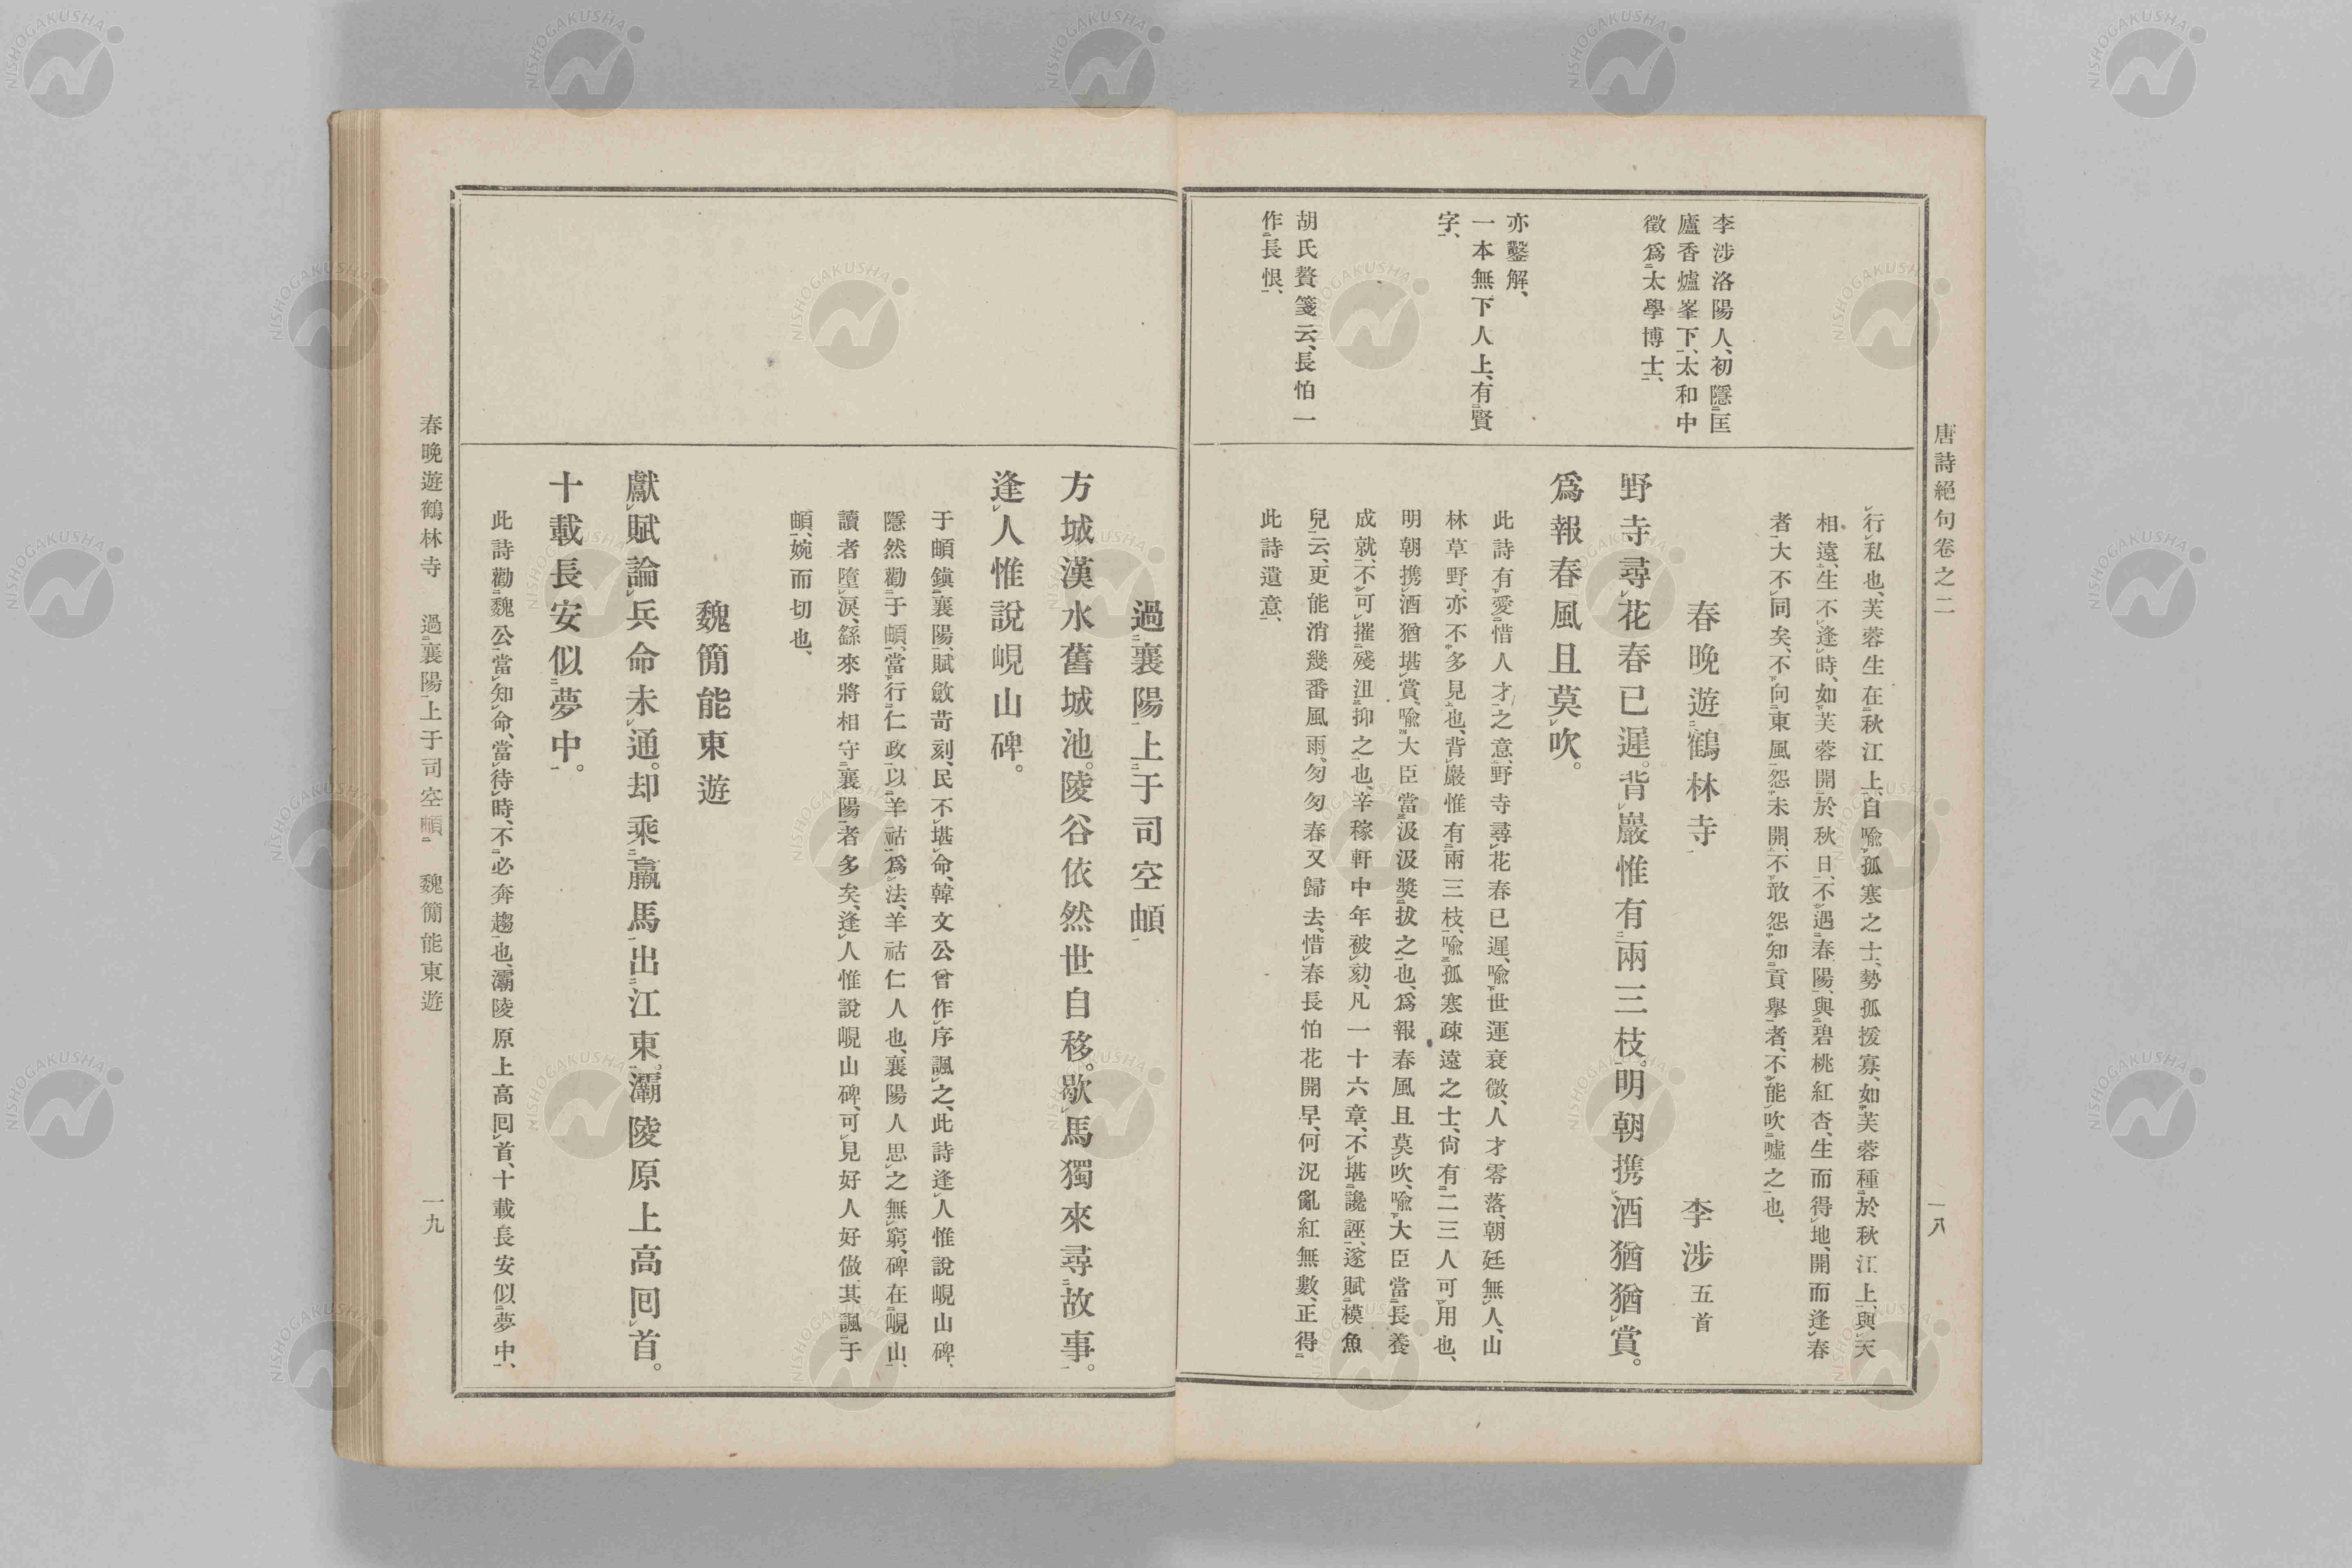 唐詩絕句卷之二
一八
李涉洛陽人、初隱匡
廬香爐峯下、太和中
徵爲太學博士、
亦鑿解、
一本無下人上、有賢
字、
胡氏贅箋云、長怕一
作長恨、
行私也、芙蓉生在秋江上、自喩孤寒之士、勢孤援寡、如芙蓉種於秋江上、與天
相遠、生不逢時、如芙蓉開於秋日、不遇春陽、與碧桃紅杏、生而得地、開而逢春
者、大不同矣、不向東風怨未開、不敢怨知貢擧者、不能吹噓之也、
春晚遊鶴林寺 李涉五首
野寺尋花春已遲。背巖惟有兩三枝。明朝携酒猶猶賞。
爲報春風且莫吹。
此詩有愛惜人才之意、野寺尋花春已遲、喩世運衰微、人才零落、朝廷無人、山
林草野、亦不多見也、背巖惟有兩三枝、喩孤寒疎遠之士、尙有二三人可用也、
明朝携酒猶堪賞、喩大臣當汲汲奬拔之也、爲報春風且莫吹、喩大臣當長養
成就、不可摧殘沮抑之也、辛稼軒中年被劾、凡一十六章、不堪讒誣、遂賦模魚
兒云、更能消幾番風雨、匆匆春又歸去、惜春長怕花開早、何況亂紅無數、正得
此詩遺意、
過襄陽上于司空頔
方城漢水舊城池。陵谷依然世自移。歇馬獨來尋故事。
逢人惟說峴山碑。
于頔鎭襄陽、賦斂苛刻、民不堪命、韓文公曾作序諷之、此詩逢人惟說峴山碑、
隱然勸于頔、當行仁政、以羊祜爲法、羊祜仁人也、襄陽人思之無窮、碑在峴山、
讀者墮淚、繇來將相守襄陽者多矣、逢人惟說峴山碑、可見好人好做、其諷于
頔、婉而切也、
魏簡能東遊
獻賦論兵命未通。却乘羸馬出江東。灞陵原上高回首。
十載長安似夢中。
此詩勸魏公當知命、當待時、不必奔趨也、灞陵原上高回首、十載長安似夢中、
春晚遊鶴林寺 過襄陽上于司空頔 魏簡能東遊
一九